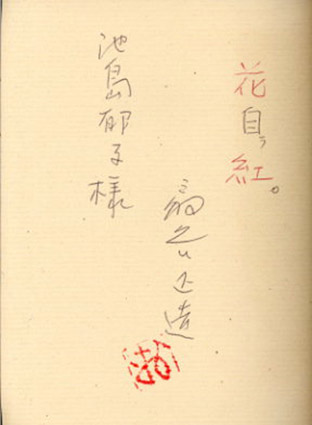 花自ラ紅。
扇谷正造
池島郁子様